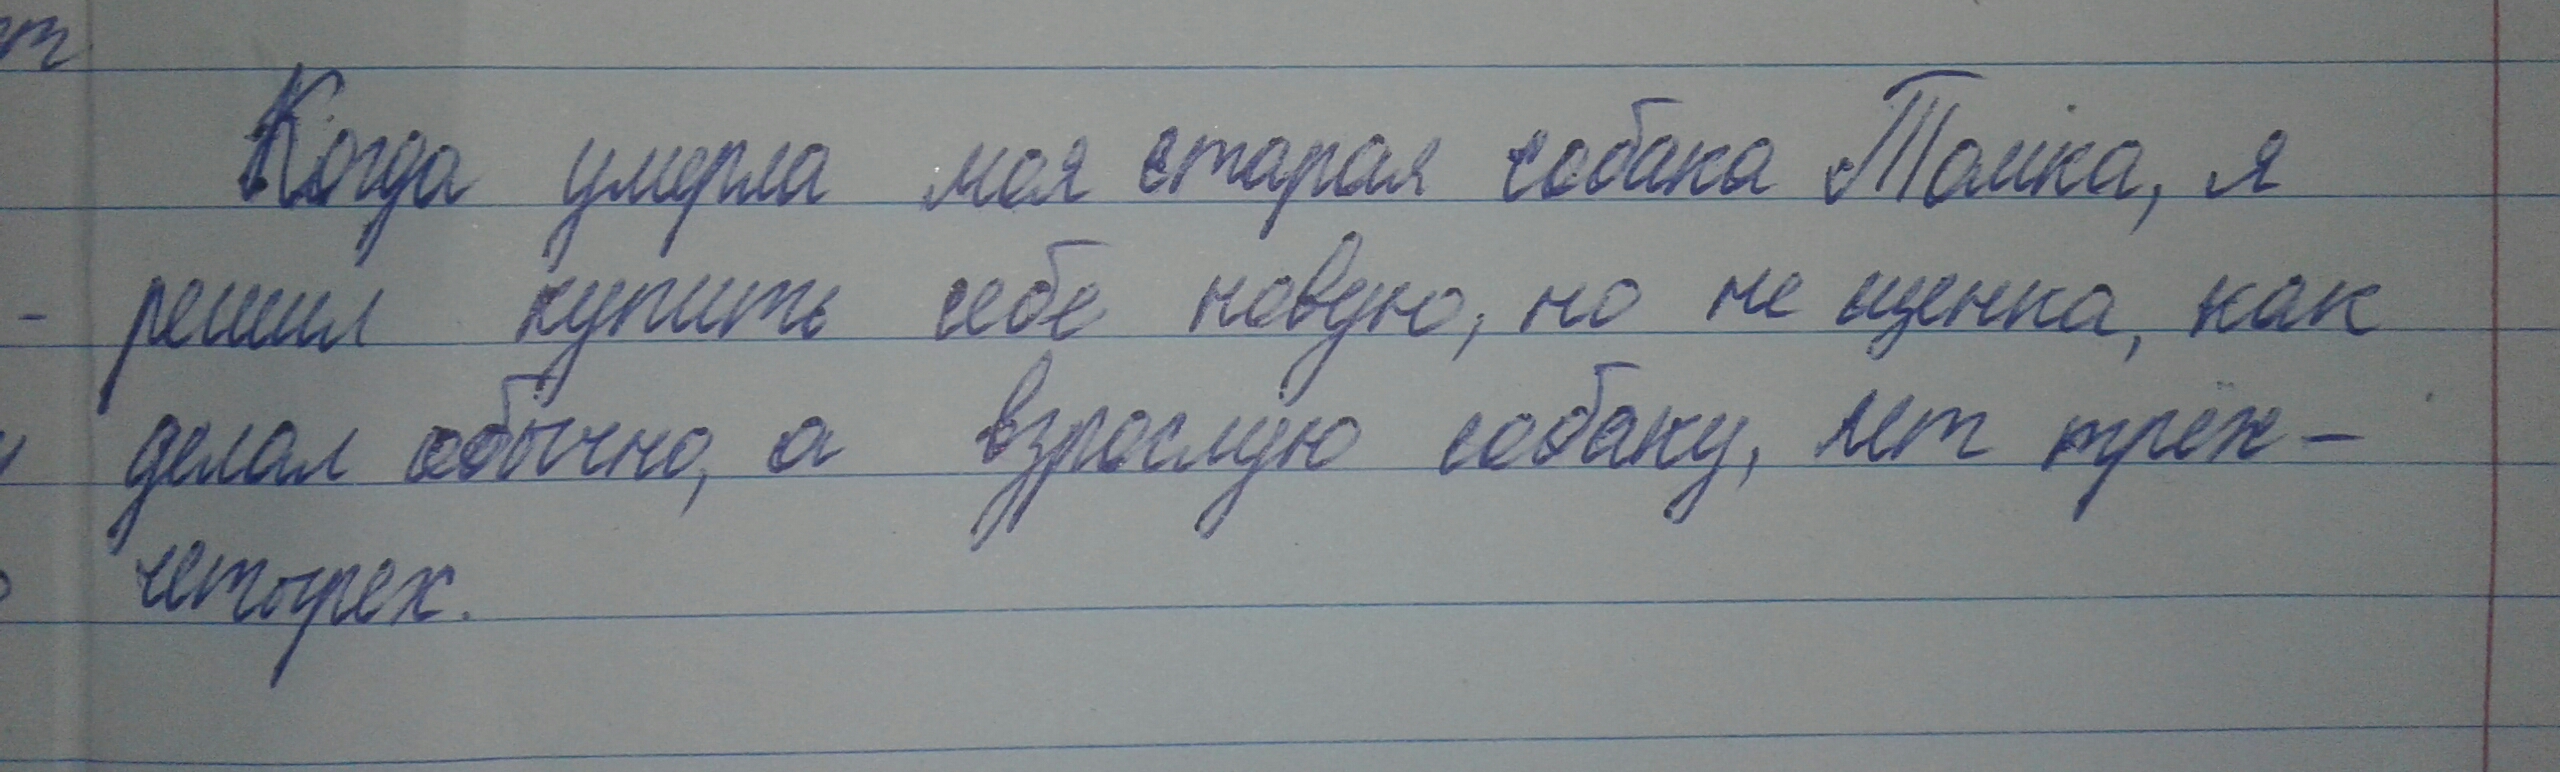 Когда умерла моя старая собака Томка, я
решил купить себе новую, но не щенка, как
делал обычно, а взрослую собаку, лет трёх-
четырех.